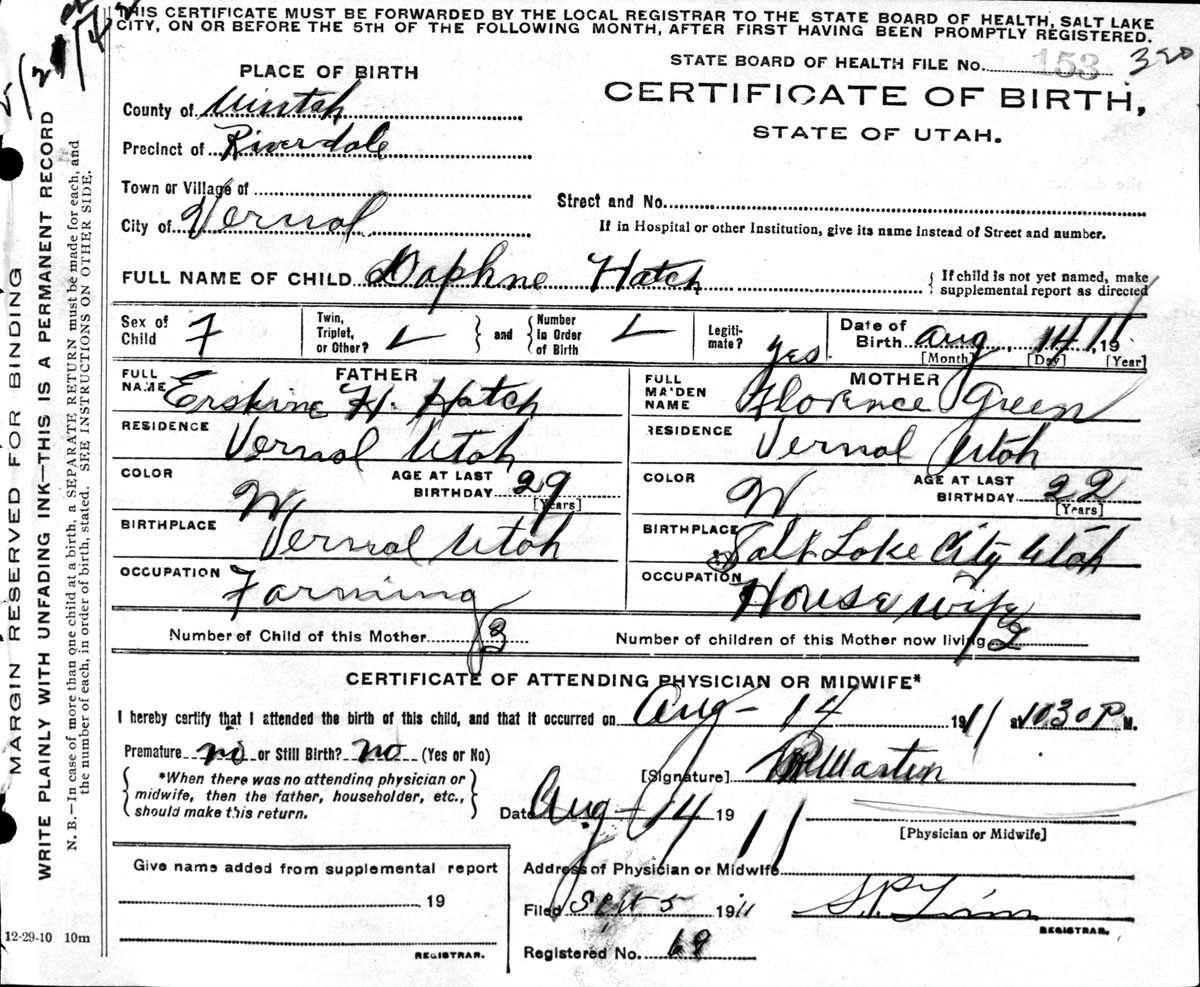 THIS CERTIFICATE MUST BE FORWARDED BY THE LOCAL REGISTRAR TO THE STATE BOARD OF HEALTH, SALT LAKE
CITY, ON OR BEFORE THE 5TH OF THE FOLLOWING MONTH, AFTER FIRST HAVING BEEN PROMPTLY REGISTERED.
STATE BOARD OF HEALTH FILE No. 153 320
PLACE OF BIRTH
CERTIFICATE OF BIRTH,
STATE OF UTAH.
County of Uintah
Precinct of Riverdale
Town or Village of
Street and No.
City of Vernal
If in Hospital or other Institution, give its name instead of Street and number.
FULL NAME OF CHILD Daphne Hatch
{ If child is not yet named, make
supplemental report as directed
Sex of Child F
Twin, Triplet, or Other? L } and { Number In Order of Birth L
Legitimate? yes
Date of Birth Aug 14, 1911
[Month] [Day] [Year]
FATHER
FULL NAME Erskine H. Hatch
RESIDENCE Vernal Utah
COLOR W
AGE AT LAST BIRTHDAY 29
[Years]
BIRTHPLACE Vernal Utah
OCCUPATION Farming
MOTHER
FULL MAIDEN NAME Florence Green
RESIDENCE Vernal Utah
COLOR W
AGE AT LAST BIRTHDAY 22
[Years]
BIRTHPLACE Salt Lake City Utah
OCCUPATION House wife
Number of Child of this Mother 3
Number of children of this Mother now living
CERTIFICATE OF ATTENDING PHYSICIAN OR MIDWIFE*
I hereby certify that I attended the birth of this child, and that it occurred on Aug - 14 1911 at 1030 P M.
Premature no or Still Birth? no (Yes or No)
{ *When there was no attending physician or
midwife, then the father, householder, etc.,
should make this return. }
[Signature]
Date Aug - 14 1911
[Physician or Midwife]
Give name added from supplemental report
19
REGISTRAR.
Address of Physician or Midwife
Filed Sept 5 1911
REGISTRAR.
Registered No. 68
12-29-10 10m
MARGIN RESERVED FOR BINDING
WRITE PLAINLY WITH UNFADING INK—THIS IS A PERMANENT RECORD
N. B.—In case of more than one child at a birth, a SEPARATE RETURN must be made for each, and
the number of each, in order of birth, stated. SEE INSTRUCTIONS ON OTHER SIDE.